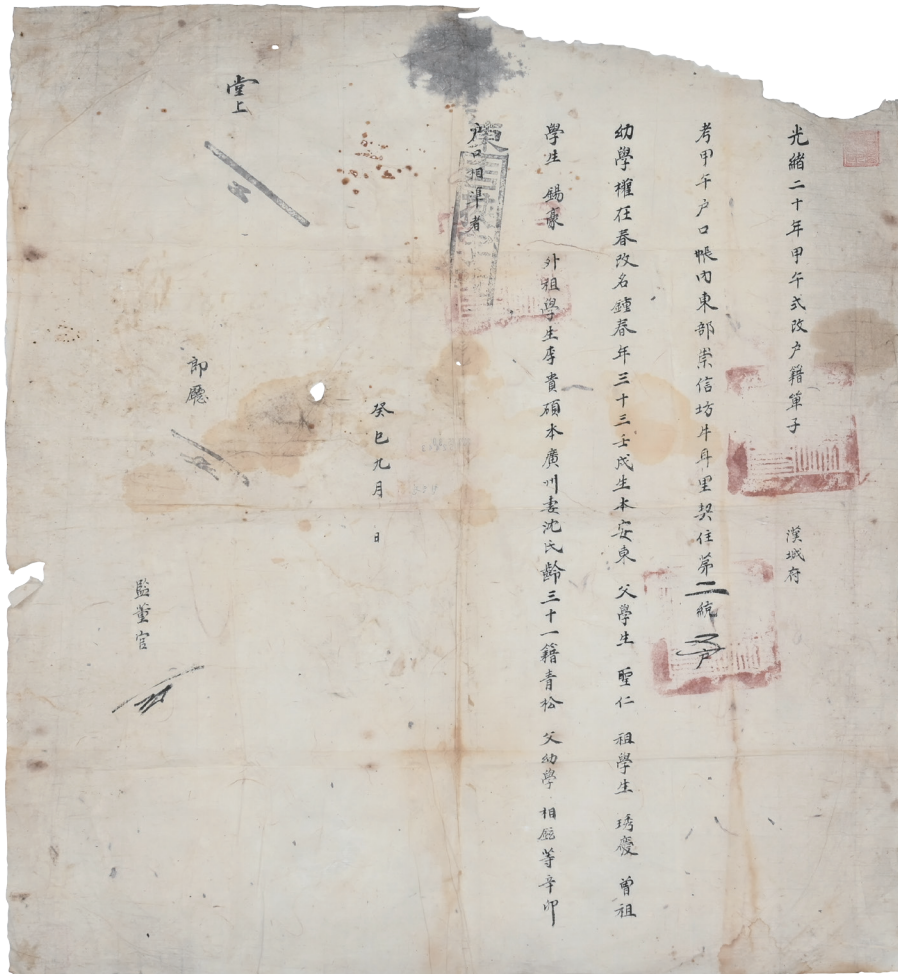 光緖二十年甲午式改戶籍單子 漢城府
考甲午戶口帳內東部崇信坊牛耳里契住第二統 戶
幼學權在春改名鍾春年三十三壬戌生本安東 父學生 聖仁 祖學生 琇 曾祖
學生 錫 外祖學生李貴碩本廣州妻沈氏齡三十一籍靑松 父幼學 相 等辛卯
戶口相準者
癸巳九月 日
堂上
郞廳
監董官